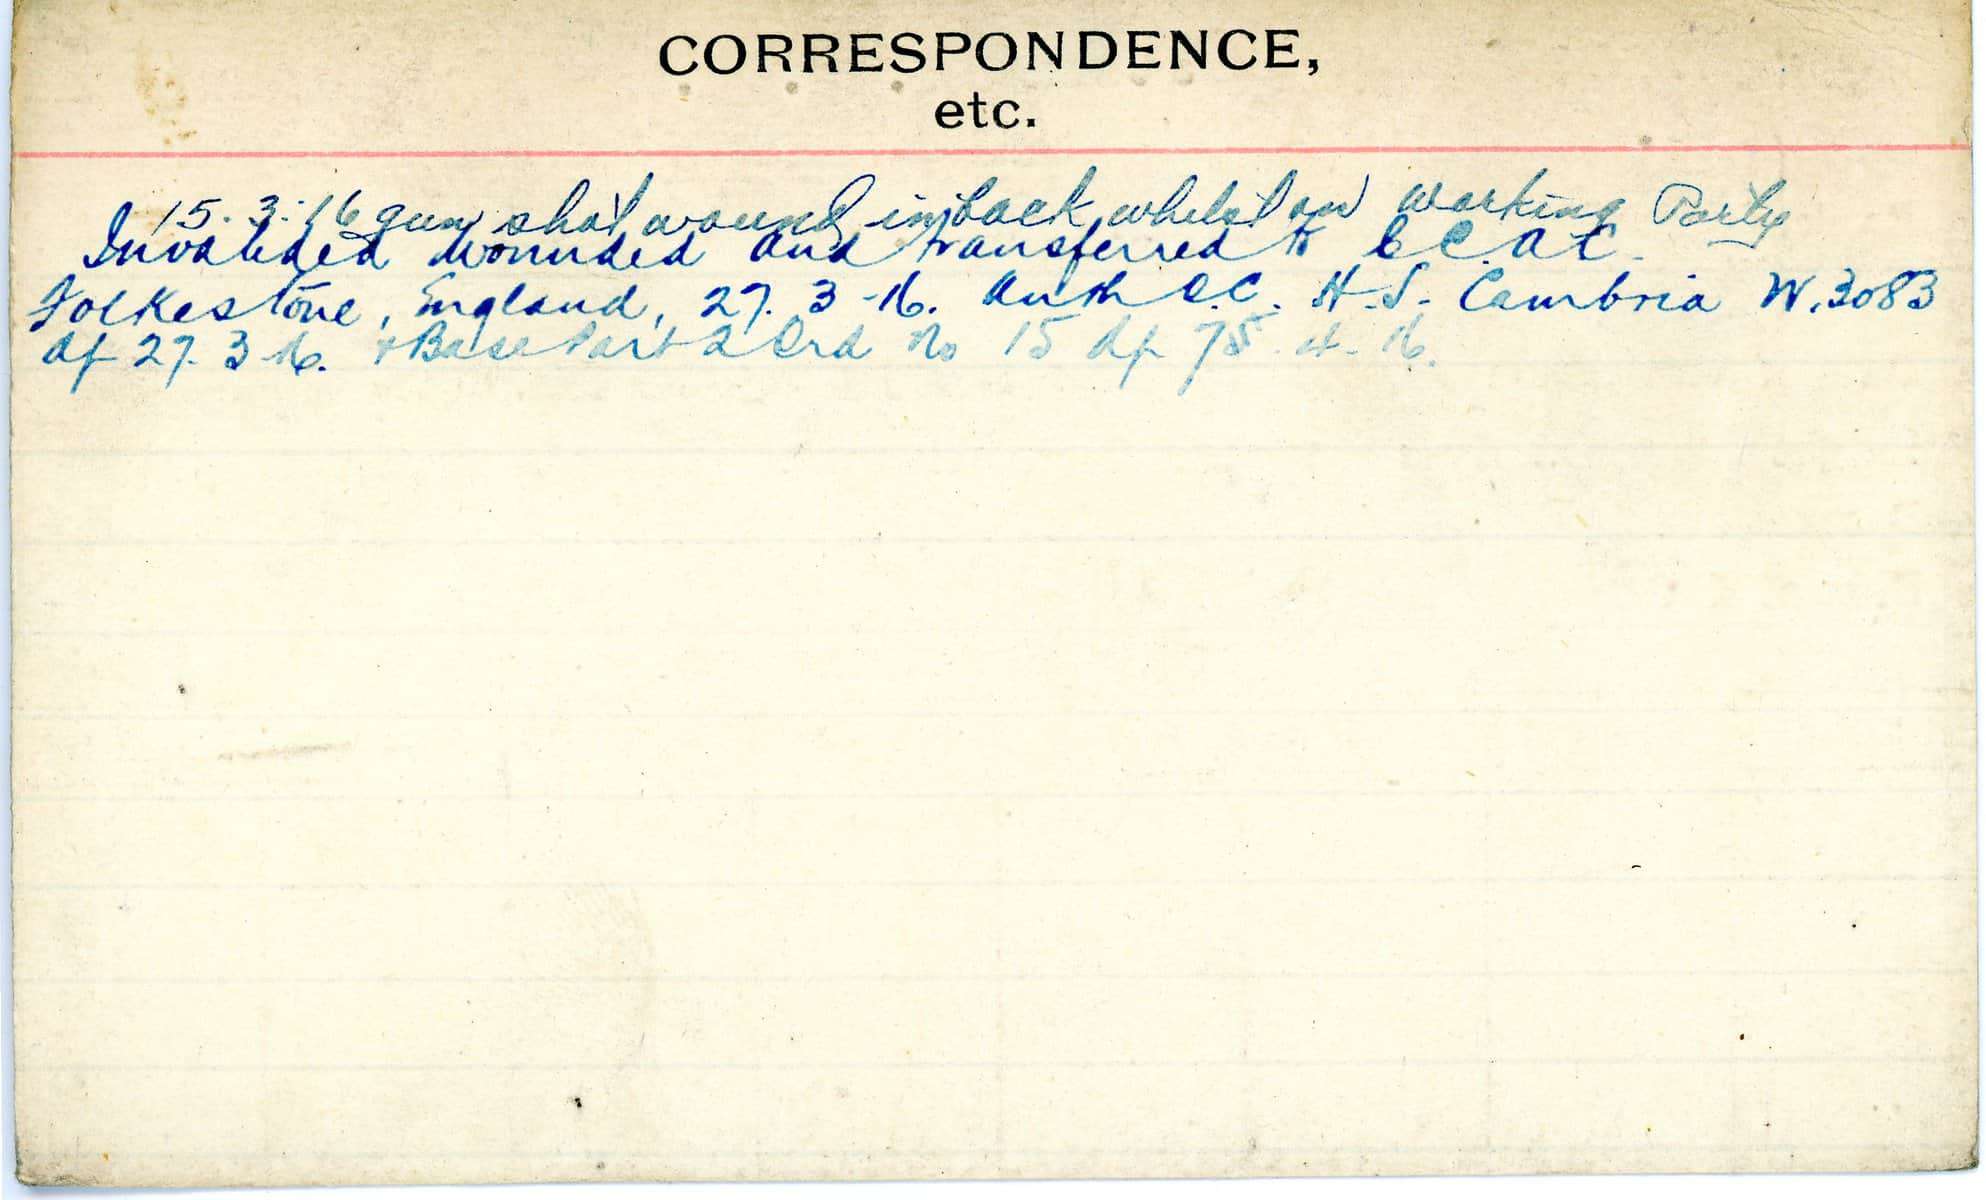 CORRESPONDENCE,
etc.
15.3.16 gun shot wound in back whilst on working Party
Invalided wounded and transferred to C.C.A.C.
Folkestone, England, 27.3-16. Auth O.C. H.S. Cambria W.3083
df 27.3-16. + Base Part 2 Ord No 15 df 4-16.